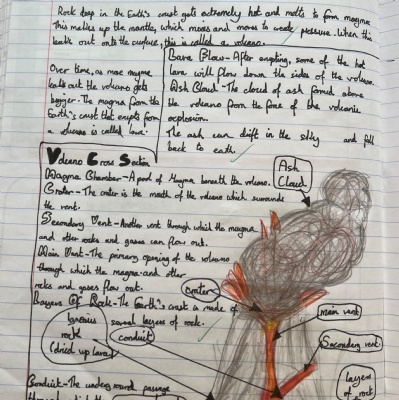 Rock deep in the Earth's crust gets extremely hot and melts to form magma.
This makes up the mantle, which moves and moves to create pressure. When this
leaks out onto the surface, this is called a volcano.
Over time, as more magma
leaks out the volcano gets
bigger. The magma from the
Earth's crust that erupts from
a volcano is called lava.
Lava Flow - After erupting, some of the hot
lava will flow down the sides of the volcano.
Ash Cloud - The cloud of ash formed above
the volcano from the force of the volcanic
explosion.
The ash can drift in the sky and fall
back to earth.
Volcano Cross Section
Magma Chamber - A pool of Magma beneath the volcano.
Crater - The crater is the mouth of the volcano which surrounds
the vent.
Secondary Vent - Another vent through which the magma
and other rocks and gases can flow out.
Main Vent - The primary opening of the volcano
through which the magma and other
rocks and gases flow out.
Layers Of Rock - The Earth's crust is made of
several layers of rock.
Igneous
rock
(dried up lava)
conduit
Conduit - The underground passage
through which the
Ash
Cloud
crater
main vent
Secondary vent
layers
of rock